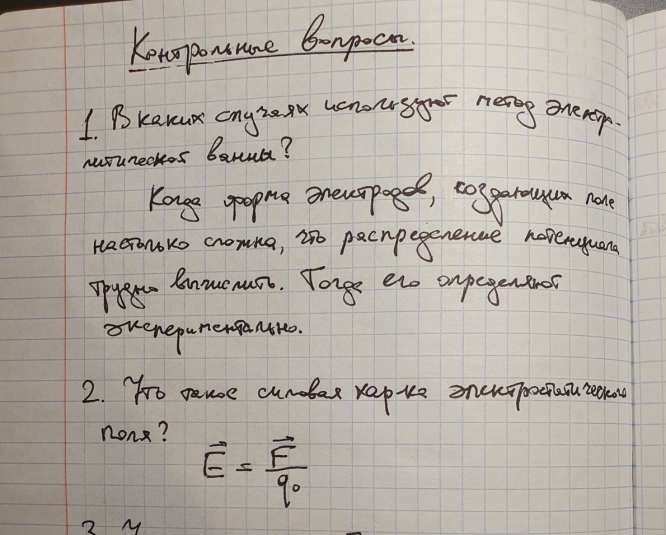 Контрольные вопросы.
1. В каких случаях используют метод электро-
литической ванны?
Когда форма электродов, создающих поле
настолько сложна, что распределение потенциала
трудно вычислить. Тогда его определяют
экспериментально.
2. Что такое силовая хар-ка электростатического
поля?
E⃗ = F⃗/q₀
3.